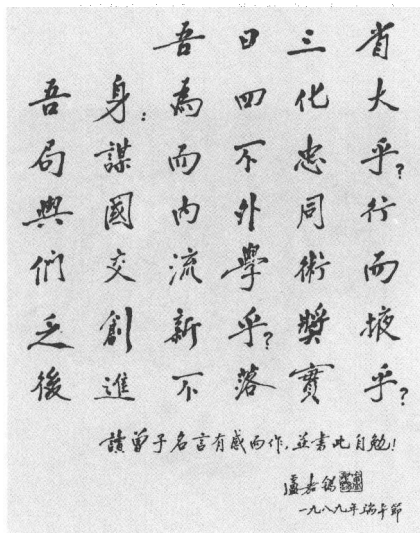 吾日三省
吾身:為四化大
局謀而不忠乎?
與國內外同行
們交流學術而
乏創新乎?獎掖
後進不落實乎?
讀曾子名言有感而作,並書此自勉!
盧嘉錫
一九八九年端午節